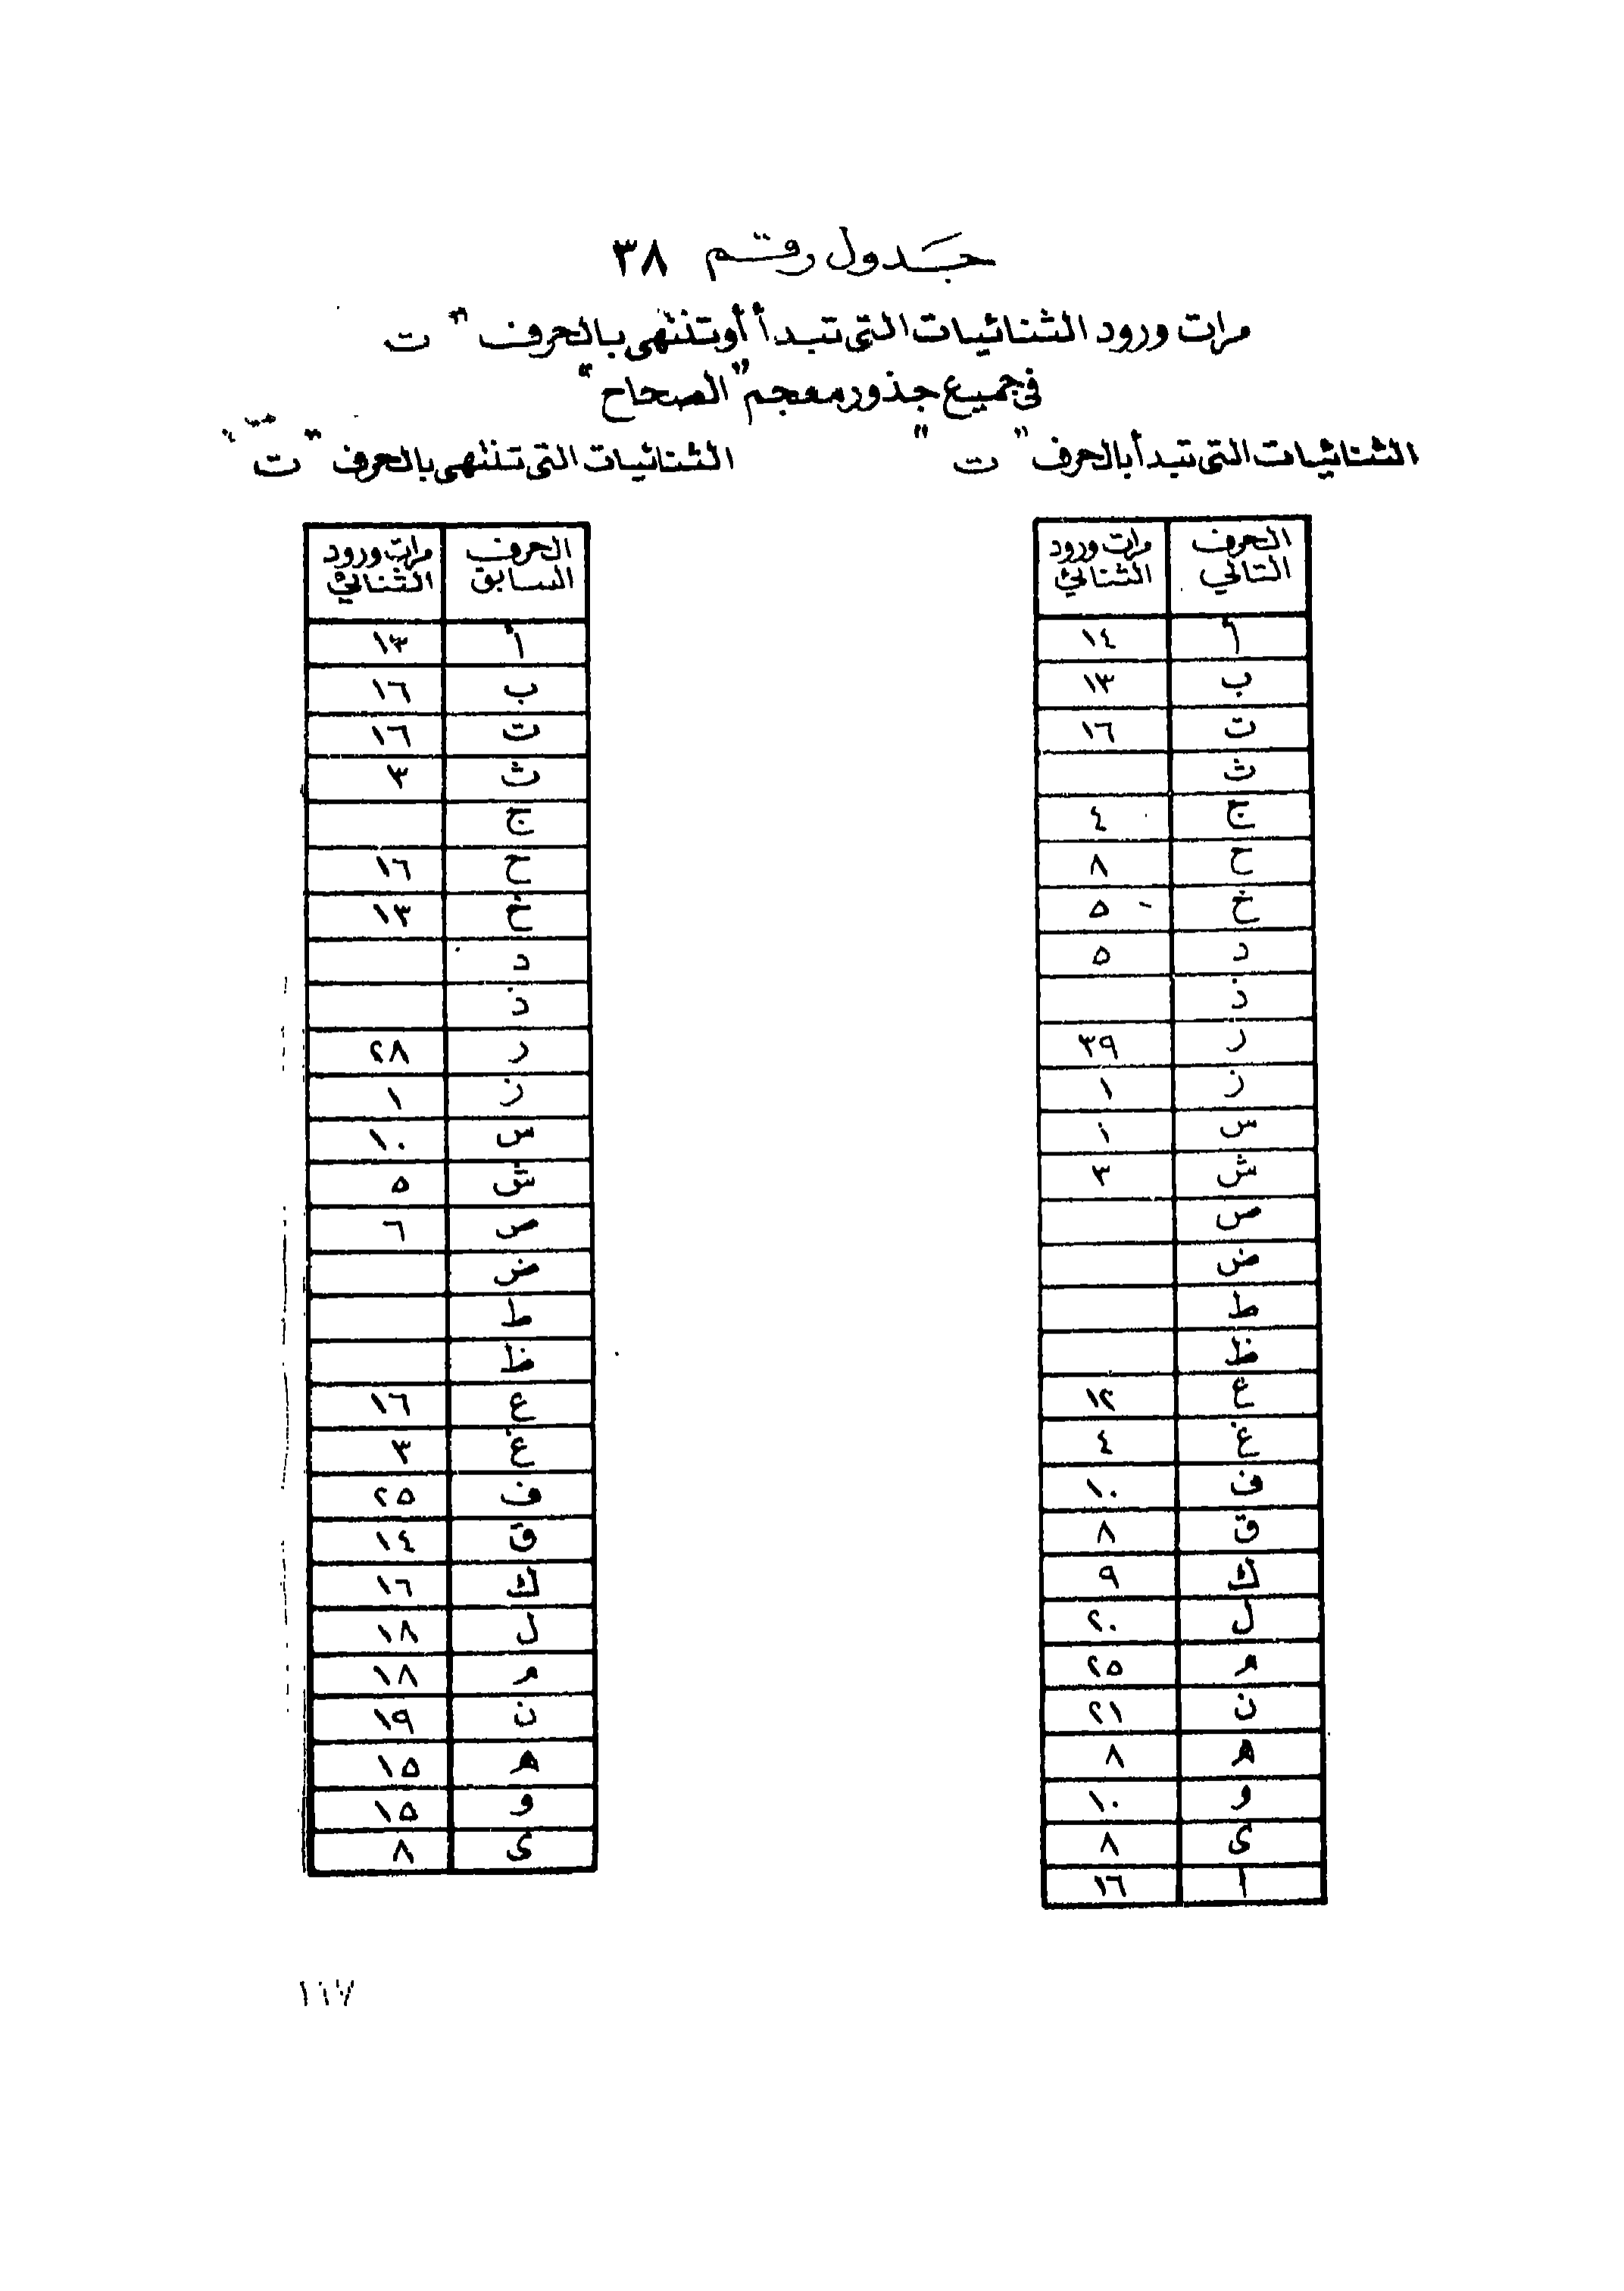 جدول رقم ٣٨
مرات ورود الثنائيات التى تبدأ أو تنتهى بالحرف " ت "
فى جميع جذور معجم "الصحاح"
الثنائيات التى تبدأ بالحرف " ت "
الحرف التالي مرات ورود الثنائي
أ ١٤
ب ١٣
ت ١٦
ث
ج ٤
ح ٨
خ ٥
د ٥
ذ
ر ٣٩
ز ١
س ١
ش ٣
ص
ض
ط
ظ
ع ١٢
غ ٤
ف ١٠
ق ٨
ك ٩
ل ٢٠
م ٢٥
ن ٢١
ه ٨
و ١٠
ى ٨
ا ١٦
الثنائيات التى تنتهى بالحرف " ت "
الحرف السابق مرات ورود الثنائي
أ ١٣
ب ١٦
ت ١٦
ث ٣
ج
ح ١٦
خ ١٣
د
ذ
ر ٢٨
ز ١
س ١٠
ش ٥
ص ٦
ض
ط
ظ
ع ١٦
غ ٣
ف ٢٥
ق ١٤
ك ١٦
ل ١٨
م ١٨
ن ١٩
ه ١٥
و ١٥
ى ٨
١٦٧